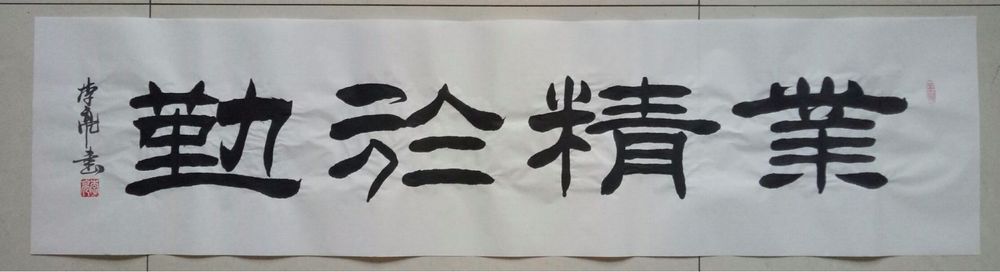 業精於勤
李亮書